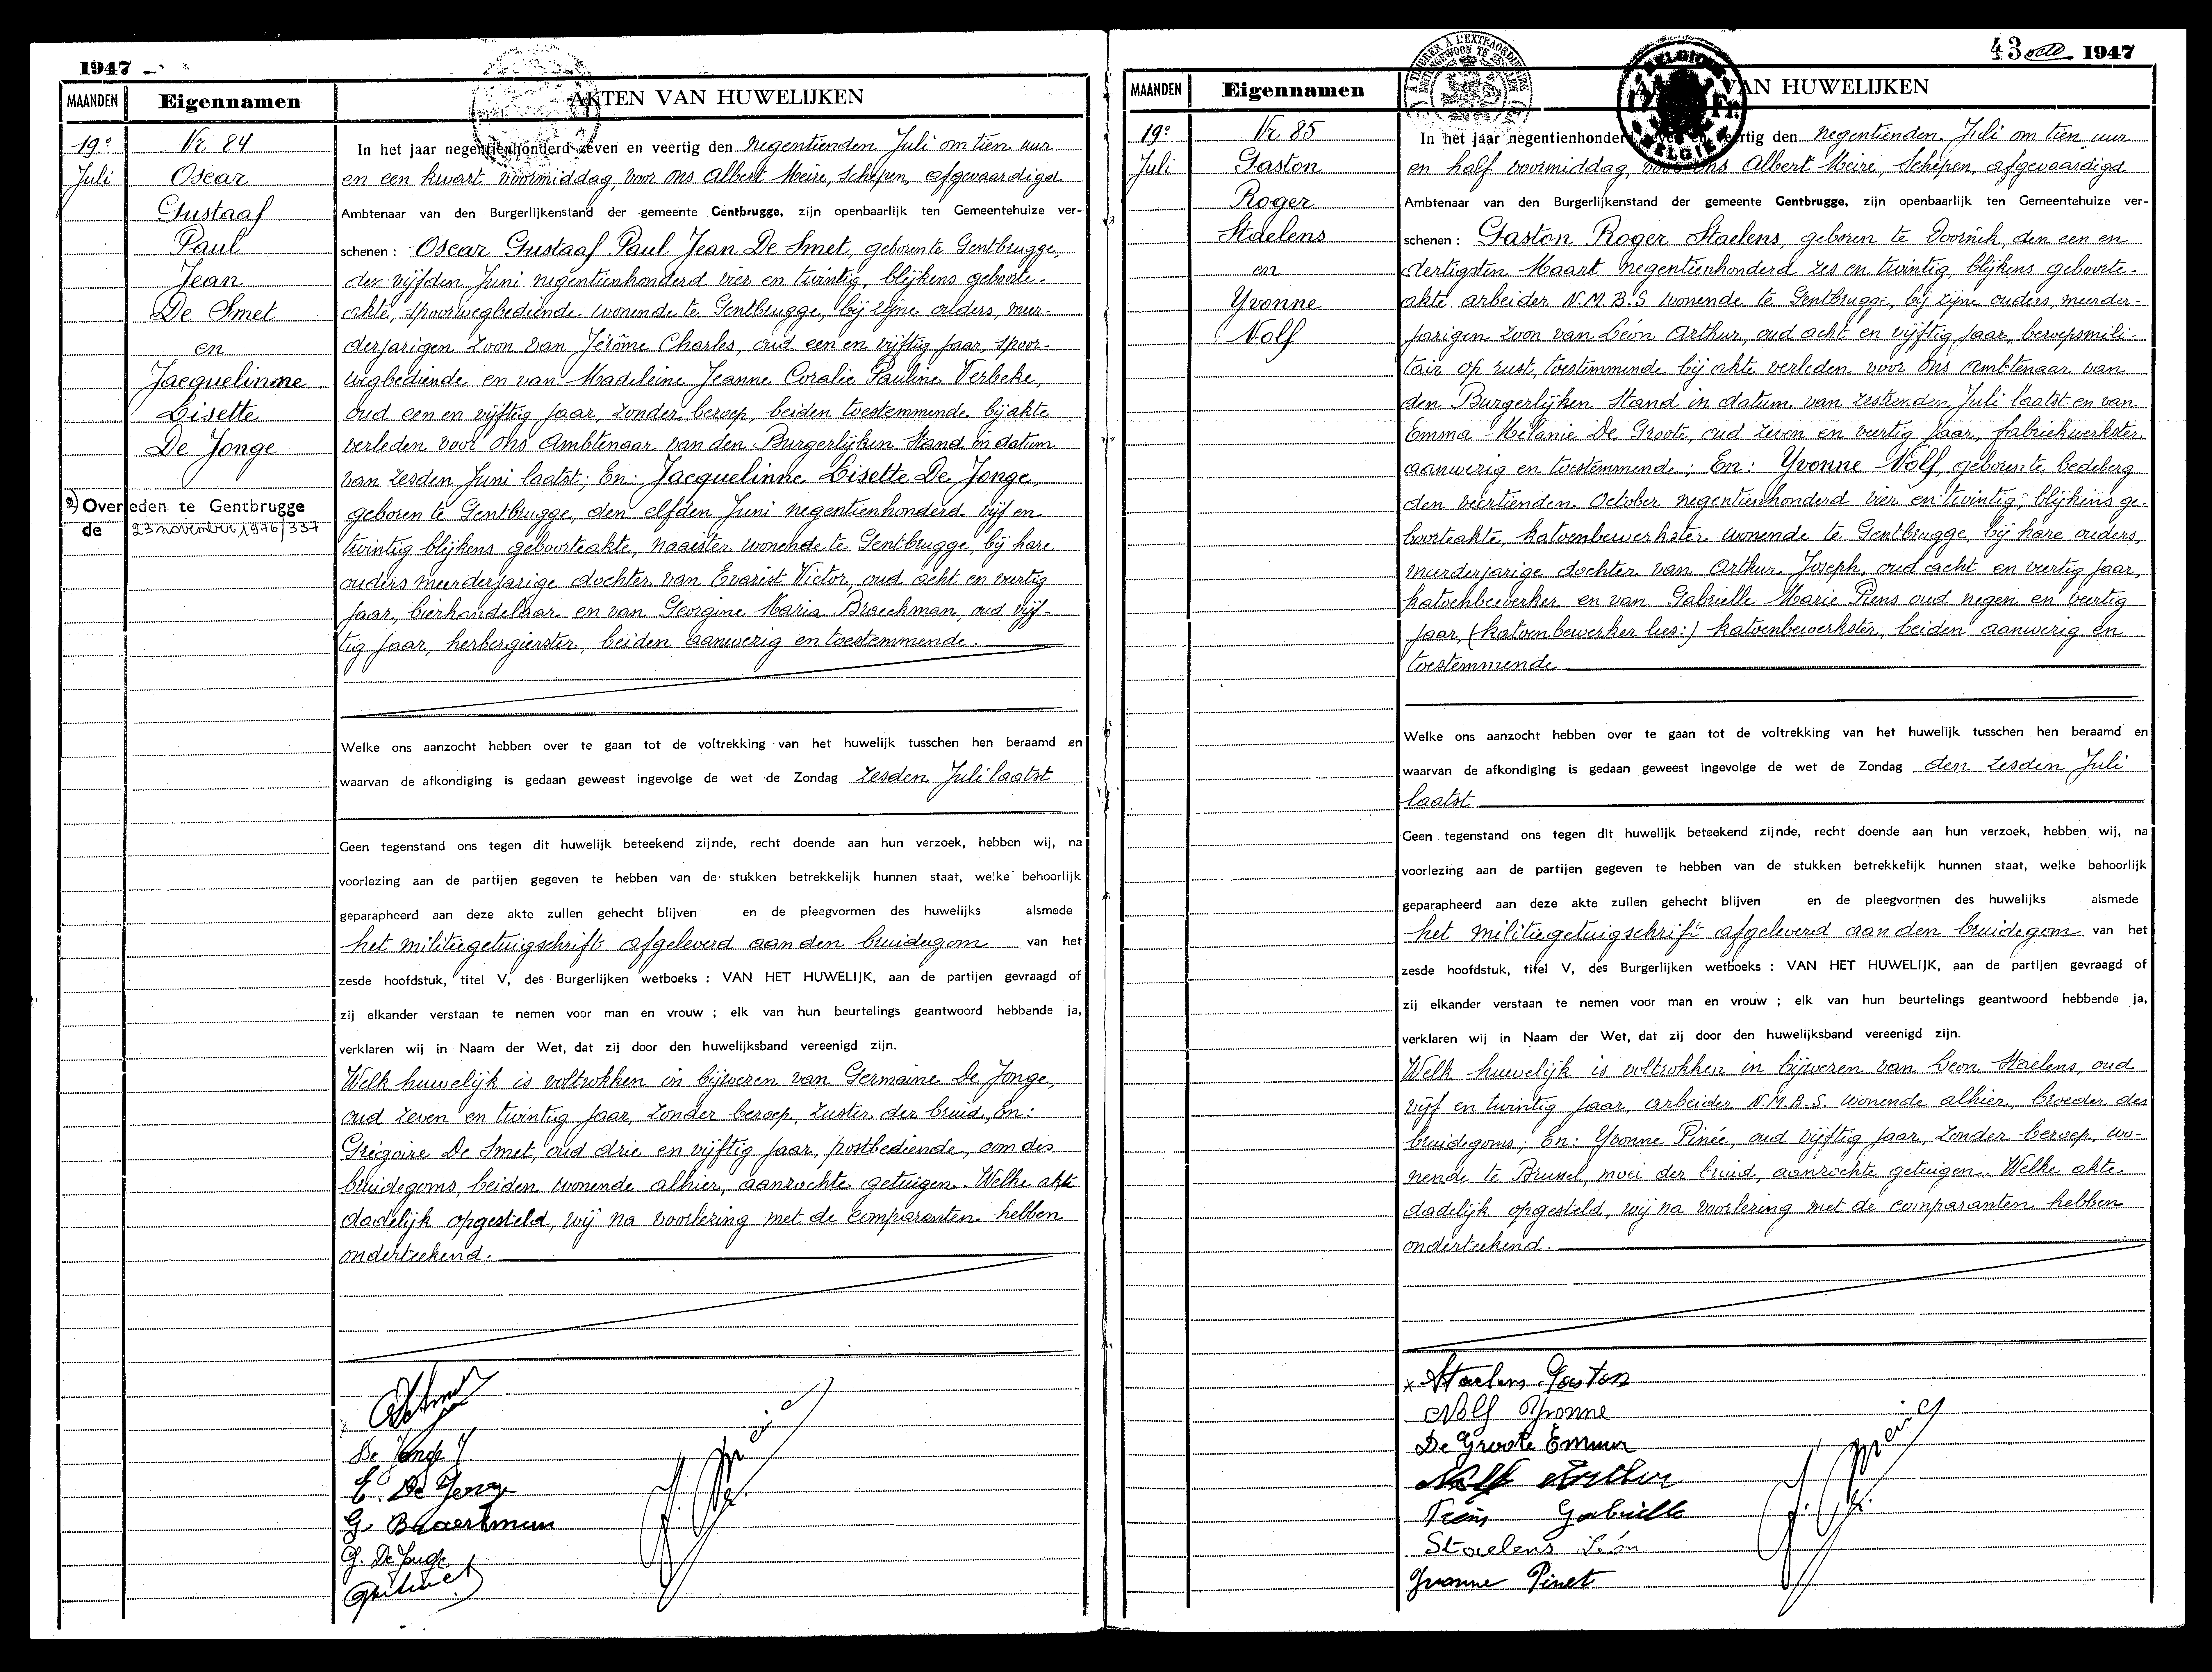 1947
MAANDEN
Eigennamen
AKTEN VAN HUWELIJKEN
19e
Juli
Nr 84
Oscar
Gustaaf
Paul
Jean
De Smet
en
Jacquelinne
Lisette
De Jonge
Overleden te Gentbrugge
de 23 november 1976/337
In het jaar negentienhonderd zeven en veertig den negentienden Juli om tien uur
en een kwart voormiddag, voor ons Albert Meire, Schepen, afgevaardigd
Ambtenaar van den Burgerlijkenstand der gemeente Gentbrugge, zijn openbaarlijk ten Gemeentehuize ver-
schenen : Oscar Gustaaf Paul Jean De Smet, geboren te Gentbrugge,
den vijfden Juni negentienhonderd vier en twintig, blijkens geboorte-
akte, spoorwegbediende wonende te Gentbrugge, bij zijne ouders, meer-
derjarigen zoon van Jérôme Charles, oud een en vijftig jaar, spoor-
wegbediende en van Madeleine Jeanne Coralie Pauline Verbeke,
oud een en vijftig jaar, zonder beroep, beiden toestemmende bij akte
verleden voor ons Ambtenaar van den Burgerlijken Stand in datum
van zesden Juni laatst; En: Jacquelinne Lisette De Jonge,
geboren te Gentbrugge, den elfden Juni negentienhonderd vijf en
twintig blijkens geboorteakte, naaister wonende te Gentbrugge, bij hare
ouders meerderjarige dochter van Evarist Victor, oud acht en veertig
jaar, bierhandelaar en van Georgine Maria Braeckman, oud vijf-
tig jaar, herbergierster, beiden aanwezig en toestemmende.
Welke ons aanzocht hebben over te gaan tot de voltrekking van het huwelijk tusschen hen beraamd en
waarvan de afkondiging is gedaan geweest ingevolge de wet de Zondag zesden Juli laatst
Geen tegenstand ons tegen dit huwelijk beteekend zijnde, recht doende aan hun verzoek, hebben wij, na
voorlezing aan de partijen gegeven te hebben van de stukken betrekkelijk hunnen staat, welke behoorlijk
geparapheerd aan deze akte zullen gehecht blijven en de pleegvormen des huwelijks alsmede
het militiegetuigschrift afgeleverd aan den bruidegom van het
zesde hoofdstuk, titel V, des Burgerlijken wetboeks : VAN HET HUWELIJK, aan de partijen gevraagd of
zij elkander verstaan te nemen voor man en vrouw ; elk van hun beurtelings geantwoord hebbende ja,
verklaren wij in Naam der Wet, dat zij door den huwelijksband vereenigd zijn.
Welk huwelijk is voltrokken in bijwezen van Germaine De Jonge,
oud zeven en twintig jaar, zonder beroep, zuster der bruid, En:
Grégoire De Smet, oud drie en vijftig jaar, postbediende, oom des
bruidegoms, beiden wonende alhier, aanzochte getuigen. Welke akte
dadelijk opgesteld, wij na voorlezing met de comparanten hebben
onderteekend.
De Jonge J.
E. De Jonge
G. Braeckman
G. De Jonge
43 octo 1947
MAANDEN
Eigennamen
VAN HUWELIJKEN
19e
Juli
Nr 85
Gaston
Roger
Staelens
en
Yvonne
Nolf
In het jaar negentienhonderd zeven en veertig den negentienden Juli om tien uur
en half voormiddag, voor ons Albert Meire, Schepen, afgevaardigd
Ambtenaar van den Burgerlijkenstand der gemeente Gentbrugge, zijn openbaarlijk ten Gemeentehuize ver-
schenen : Gaston Roger Staelens, geboren te Doornik, den een en
dertigsten Maart negentienhonderd zes en twintig, blijkens geboorte-
akte arbeider N.M.B.S wonende te Gentbrugge, bij zijne ouders, meerder-
jarigen zoon van Léon Arthur, oud acht en vijftig jaar, beroepsmili-
tair op rust, toestemmende bij akte verleden voor ons ambtenaar van
den Burgerlijken Stand in datum van zestienden Juli laatst en van
Emma Mélanie De Groote, oud zeven en veertig jaar, fabriekwerkster
aanwezig en toestemmende; En: Yvonne Nolf, geboren te Ledeberg
den veertienden October negentienhonderd vier en twintig, blijkens ge-
boorteakte, katoenbewerkster wonende te Gentbrugge, bij hare ouders,
meerderjarige dochter van Arthur Joseph, oud acht en veertig jaar,
katoenbewerker en van Gabrielle Marie Piens oud negen en veertig
jaar, (katoenbewerker lees:) katoenbewerkster, beiden aanwezig en
toestemmende
Welke ons aanzocht hebben over te gaan tot de voltrekking van het huwelijk tusschen hen beraamd en
waarvan de afkondiging is gedaan geweest ingevolge de wet de Zondag den zesden Juli
laatst
Geen tegenstand ons tegen dit huwelijk beteekend zijnde, recht doende aan hun verzoek, hebben wij, na
voorlezing aan de partijen gegeven te hebben van de stukken betrekkelijk hunnen staat, welke behoorlijk
geparapheerd aan deze akte zullen gehecht blijven en de pleegvormen des huwelijks alsmede
het militiegetuigschrift afgeleverd aan den bruidegom van het
zesde hoofdstuk, titel V, des Burgerlijken wetboeks : VAN HET HUWELIJK, aan de partijen gevraagd of
zij elkander verstaan te nemen voor man en vrouw ; elk van hun beurtelings geantwoord hebbende ja,
verklaren wij in Naam der Wet, dat zij door den huwelijksband vereenigd zijn.
Welk huwelijk is voltrokken in bijwezen van Leon Staelens, oud
vijf en twintig jaar, arbeider N.M.B.S. wonende alhier, broeder des
bruidegoms; En: Yvonne Pinée, oud vijftig jaar, zonder beroep, wo-
nende te Brussel, moei der bruid, aanzochte getuigen. Welke akte
dadelijk opgesteld, wij na voorlezing met de comparanten hebben
onderteekend.
x Staelens Gaston
Nolf Yvonne
De Groote Emma
Nolf Arthur
Piens Gabrielle
Staelens Léon
Yvonne Pinet